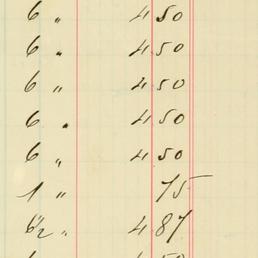 6 " 4 50
6 " 4 50
6 " 4 50
6 " 4 50
6 " 4 50
1 " 75
6 1/2 " 4 87
6 " 4 50